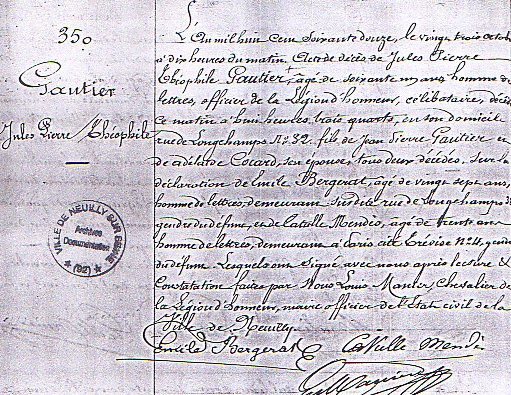 350
Gautier
Jules Pierre Théophile
VILLE DE NEUILLY SUR SEINE
Archives
Documentation
(92)
L'An mil huit cent soixante douze, le vingt trois octobre
à dix heures du matin. Acte de décès de Jules Pierre
Théophile Gautier, agé de soixante un ans, homme de
lettres, officier de la Légion d'honneur, célibataire, décédé
ce matin à huit heures trois quarts, en son domicile
rue de Longchamps No. 32. fils de Jean Pierre Gautier et
de adélaïde Cocard, son épouse, tous deux décédés, Sur la
déclaration de Emile Bergerat, agé de vingt sept ans,
homme de lettres, demeurant rue de Longchamps
gendre du défunt, et de Catulle Mendès, agé de trente ans
homme de lettres, demeurant à Paris cité Trévise No. gendre
du défunt. Lesquels ont signé avec nous après lecture &
Constatation faites par Nous Louis Chevalier de
la Légion d'honneur, maire officier de l'Etat civil de la
Ville de Neuilly.
Emile Bergerat Catulle Mendès